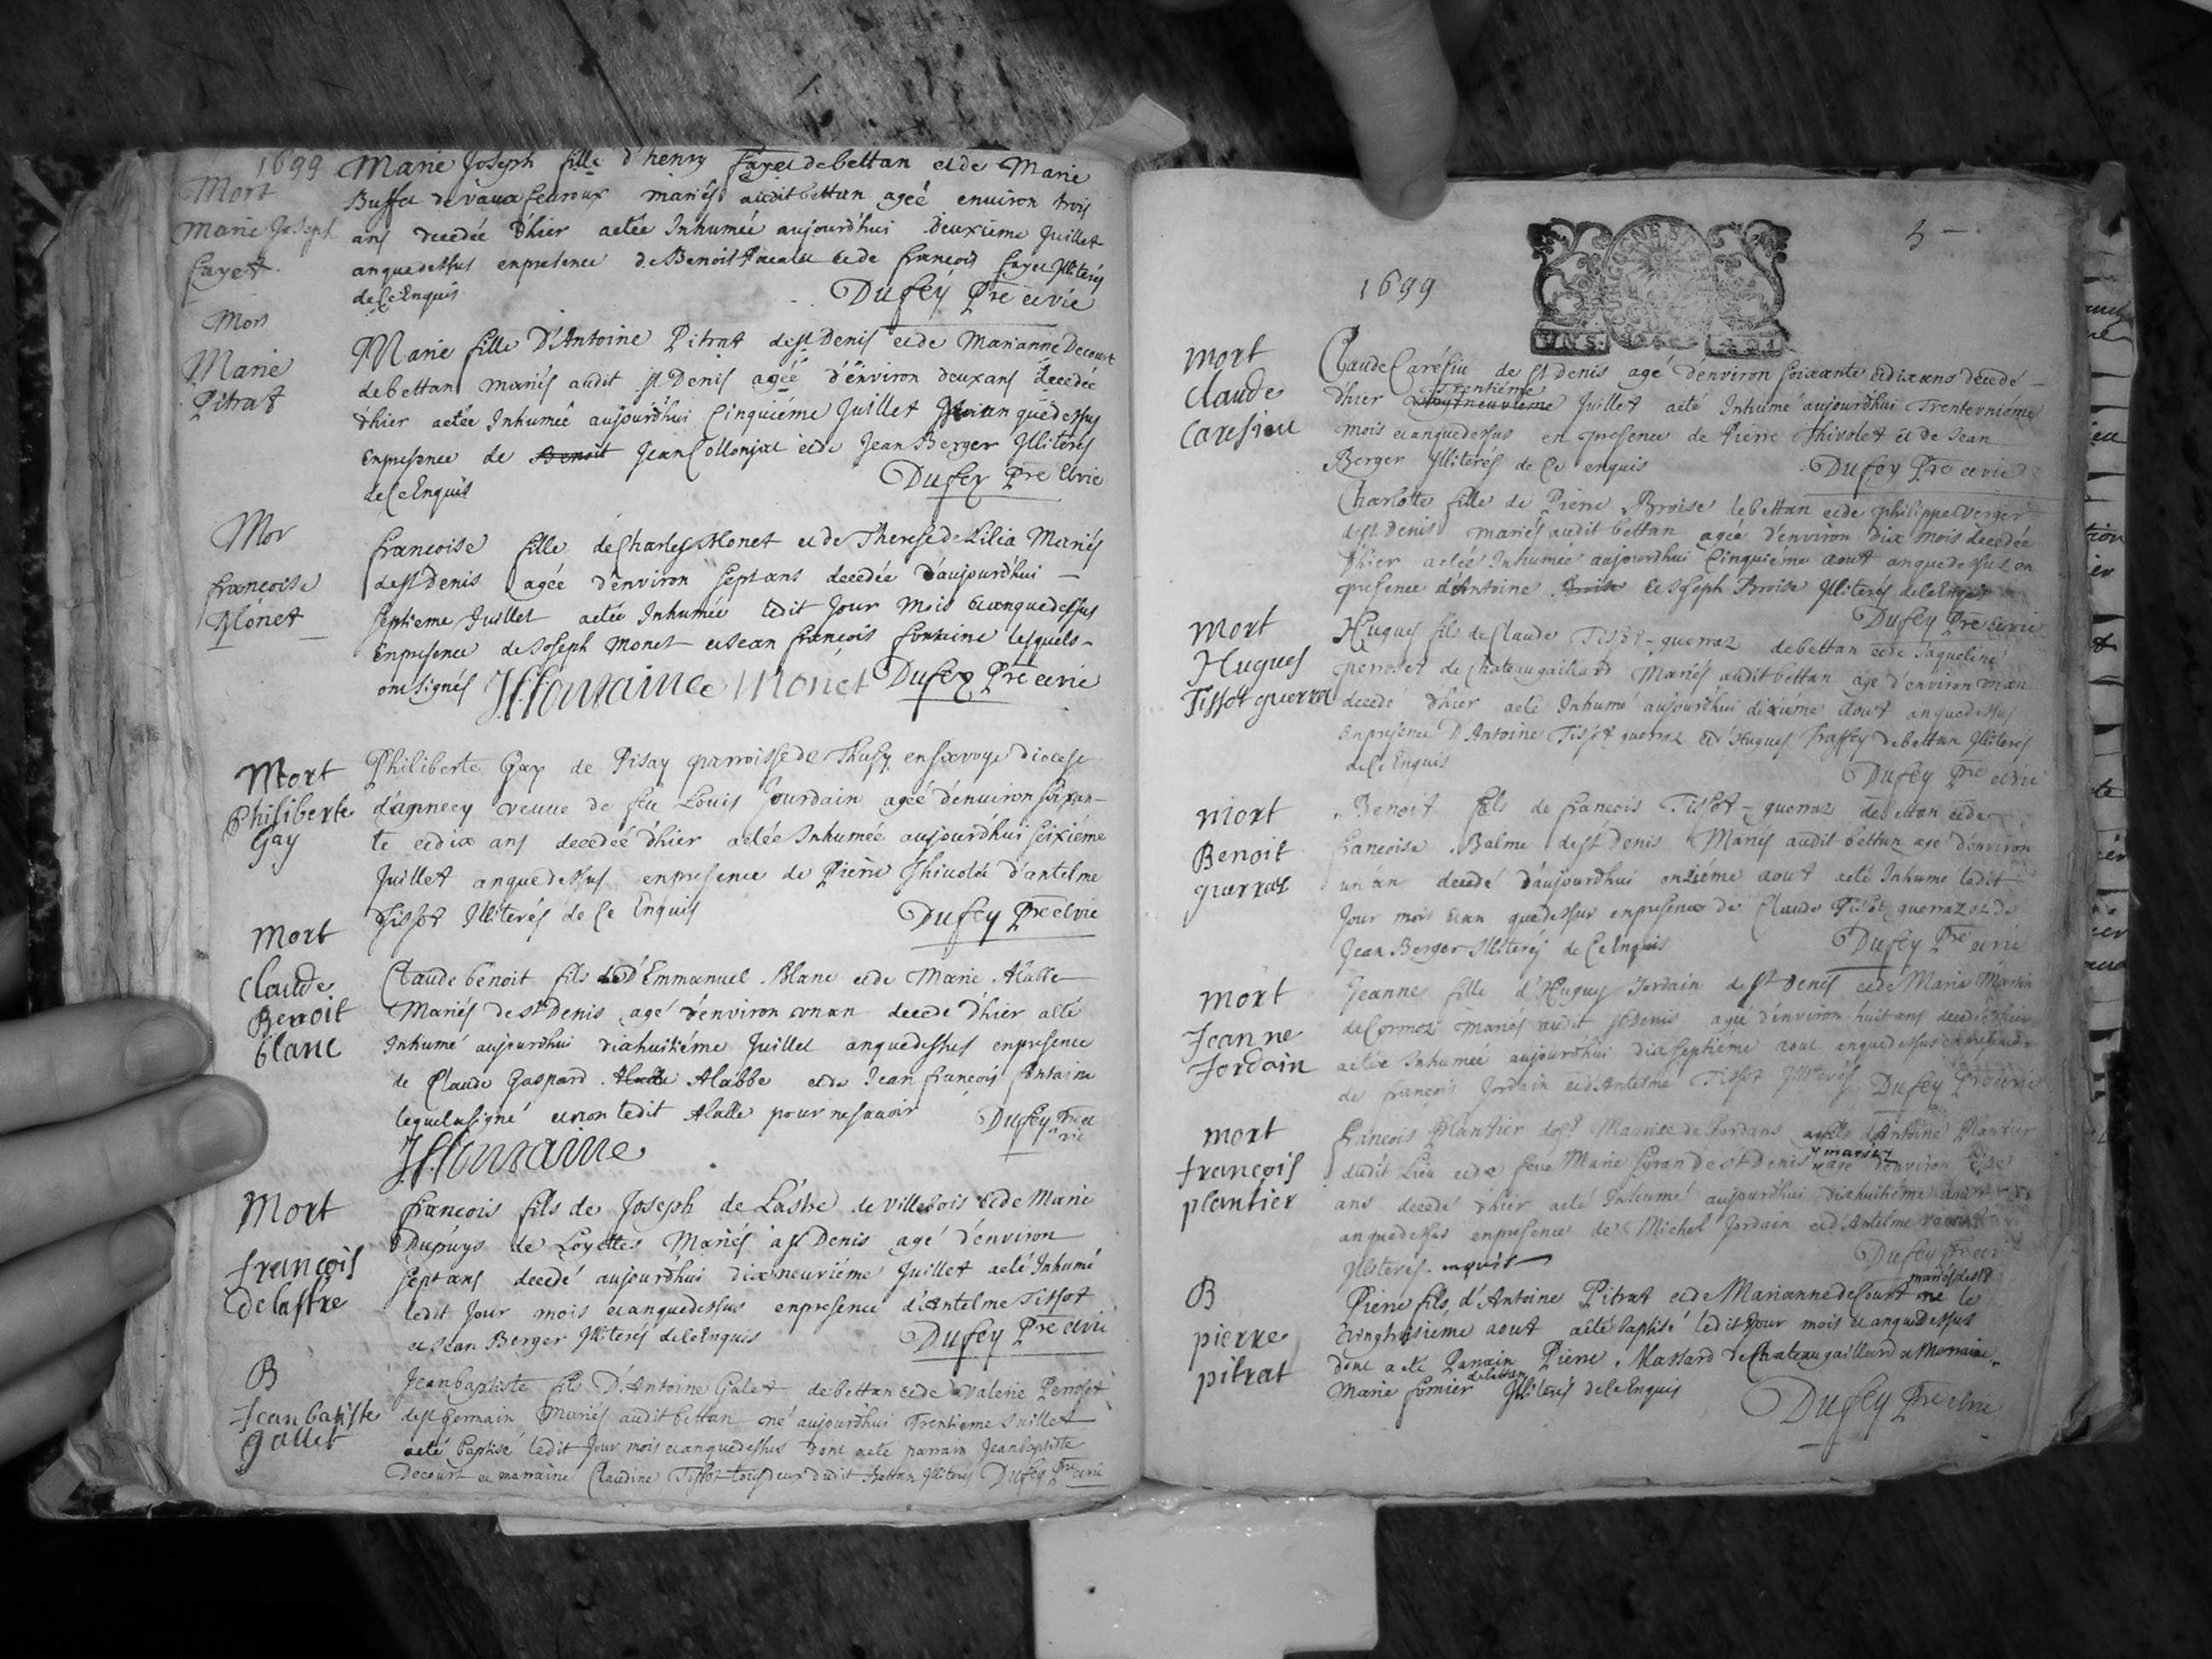 1699
Mort
Marie Joseph
fayet
Marie Joseph fille d'henry fayet de bettan et de Marie
Buffet de vaux fevroux mariés audit bettan agéé environ trois
ans decedée d'hier aetée Inhumée aujourd'hui deuxiéme Juillet
anquedessus enpresence de Benoist et de francois fayet Illiterés
de Ce Enquis
Dufey Pre et vic
Mort
Marie
Pitrat
Marie fille D'Antoine Pitrat de st Denis et de Marianne Decourt
de bettan mariés audit st Denis agéé d'énviron deux ans decedée
d'hier aetée Inhumée aujourd'hui Cinquiéme Juillet quedessus
Enpresence de Benoit Jean Collonjat et de Jean Berger Illiterés
de Ce Enquis
Dufey Pre et vic
Mor
francoise
Monet
francoise fille de Charles Monet et de Therese de Lilia Mariés
de st Denis agée d'énviron sept ans decedée d'aujourd'hui
septieme Juillet aetée Inhumée ledit Jour mois et anquedessus
Enpresence de Joseph Monet et Jean francois fontaine lesquels
ont signés Jffontaine Monet Dufey Pre et vic
Mort
Philiberte
Gay
Philiberte Gay de Pisay parroisse de Thusy en savoye diocese
d'agnecy veuve de feu Louis Jourdain agéé d'énviron soixan-
te et dix ans decedéé d'hier aetée Inhumée aujourd'hui seixiéme
Juillet anquedessus enpresence de Piérre Thivolét d'antelme
Tissot Illiterés de Ce Enquis
Dufey Pre et vic
Mort
Claude
Benoit
blanc
Claude benoit fils d'Emmanuel Blanc et de Marie Alabbe
Mariés de st Denis agé d'énviron un an decedé d'hier aété
Inhumé aujourdhui dixhuitiéme Juillet anquedessus enpresence
de Claude Gaspard Alabbe et de Jean francois fontaine
lequel a signé et non ledit Alabbe pour ne savoir
Dufey Pre et
vic
Jffontaine
Mort
francois
delastre
francois fils de Joseph de Lastre de villebois et de Marie
Dupuys de Loyettes Mariés a st Denis agé d'énviron
sept ans decedé aujourd'hui dixneuviéme Juillet aeté Inhumé
ledit Jour mois et anquedessus enpresence d'Antelme Tissot
et Jean Berger Illiterés de Ce Enquis
Dufey Pre et vic
B
Jean batiste
gallet
Jeanbaptiste fils D'Antoine Galet de bettan et de valerie Perrosot
de st germain Mariés audit bettan né aujourd'hui Trentieme Juillet
aeté baptisé ledit Jour mois et anquedessus dont aeté parrain Jeanbaptiste
Decourt et marraine Claudine Tissot tous deux dudit bettan Illiterés Dufey Pre et vic
1699
mort
claude
caresieu
Claude Carésiu de st Denis agé d'énviron soixante et dix ans decedé
d'hier Trentiéme Juillet aeté Inhumé aujourdhui Trenteuniéme
mois et anquedessus en presence de Pierre Thivolet et de Jean
Berger Illiterés de Ce enquis
Dufey Pre et vic
Charlotte fille de Pierre Broise de bettan et de philippe verger
de st Denis mariés audit bettan agée d'énviron dix mois decedée
d'hier aetée Inhumée aujourdhui Cinquiéme aout anquedessus en
presence d'Antoine et Joseph Broise Illiterés de Ce Enquis
Dufey Pre et vic
mort
Hugues
Tissot guerra
Hugues fils de Claude Tissot-guerraz de bettan et de Jaqueline
perrosét de chateau gaillard Mariés audit bettan agé d'énviron un an
decedé d'hier aeté Inhumé aujourdhui dixiéme aout anquedessus
Enpresence D'Antoine Tissot guerraz et d'Hugues Traffey de bettan Illiterés
de Ce Enquis
Dufey Pre et vic
mort
Benoit
guerraz
Benoit fils de francois Tissot-guerraz de bettan et de
francoise Balme de st Denis Mariés audit bettan agé d'énviron
un an decedé d'aujourdhui onziéme aout aeté Inhumé ledit
Jour mois et an quedessus enpresence de Claude Tissot guerraz et de
Jean Berger Illiterés de Ce Enquis
Dufey Pre et vic
mort
Jeanne
Jordain
Jeanne fille d'Hugues Jordain de st Denis et de Marie Martin
de Cormoz Mariés audit st Denis agée d'énviron huit ans decedée d'hier
aetée Inhumée aujourd'hui dixseptieme aout anquedessus enpresence
de francois Jordain et d'Antelme Tissot Illiterés Dufey Pre et vic
mort
francois
plantier
francois Plantier de st Maurice de gordans fils d'Antoine Plantier
dudit Lieu et de feue Marie de st Denis mariés agé d'énviron
ans decedé d'hier aeté Inhumé aujourd'hui dixhuitiéme aout
anquedessus enpresence de Michel Jordain et d'Antelme
Illiterés enquis
Dufey Pre et vic
B
pierre
pitrat
mariés de st D
Pierre fils d'Antoine Pitrat et de Marianne de Court né le
aout aété baptisé ledit Jour mois et anquedessus
dont a eté Parrain Pierre Massard de Chateau gaillard et Marraine
Marie fornier de bettan Illiterés de Ce Enquis
Dufey Pre et vic